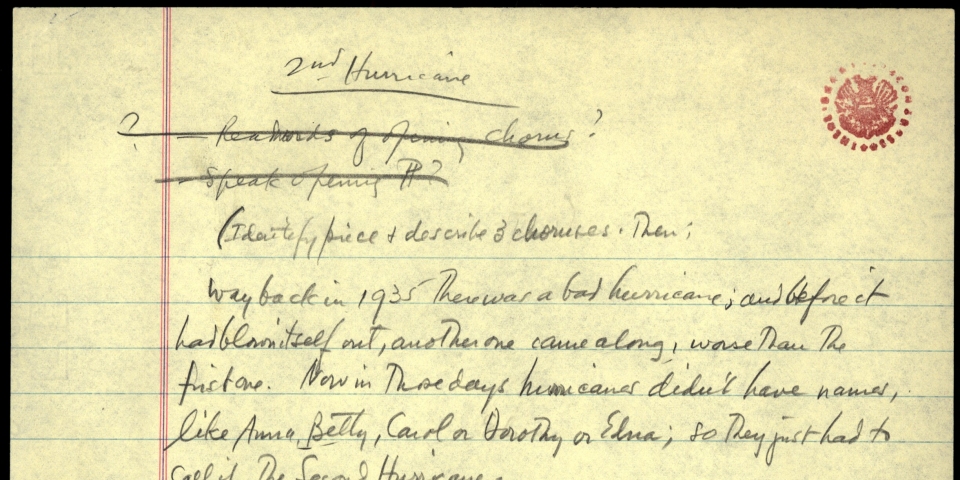 2nd Hurricane
? — Read words of opening chorus?
— Speak opening ¶?
(Identify piece + describe 3 choruses. Then;
Way back in 1935 there was a bad hurricane; and before it
had blown itself out, another one came along, worse than the
first one. Now in those days hurricanes didn't have names,
like Anna, Betty, Carol or Dorothy or Edna; so they just had to
call it The Second Hurricane.